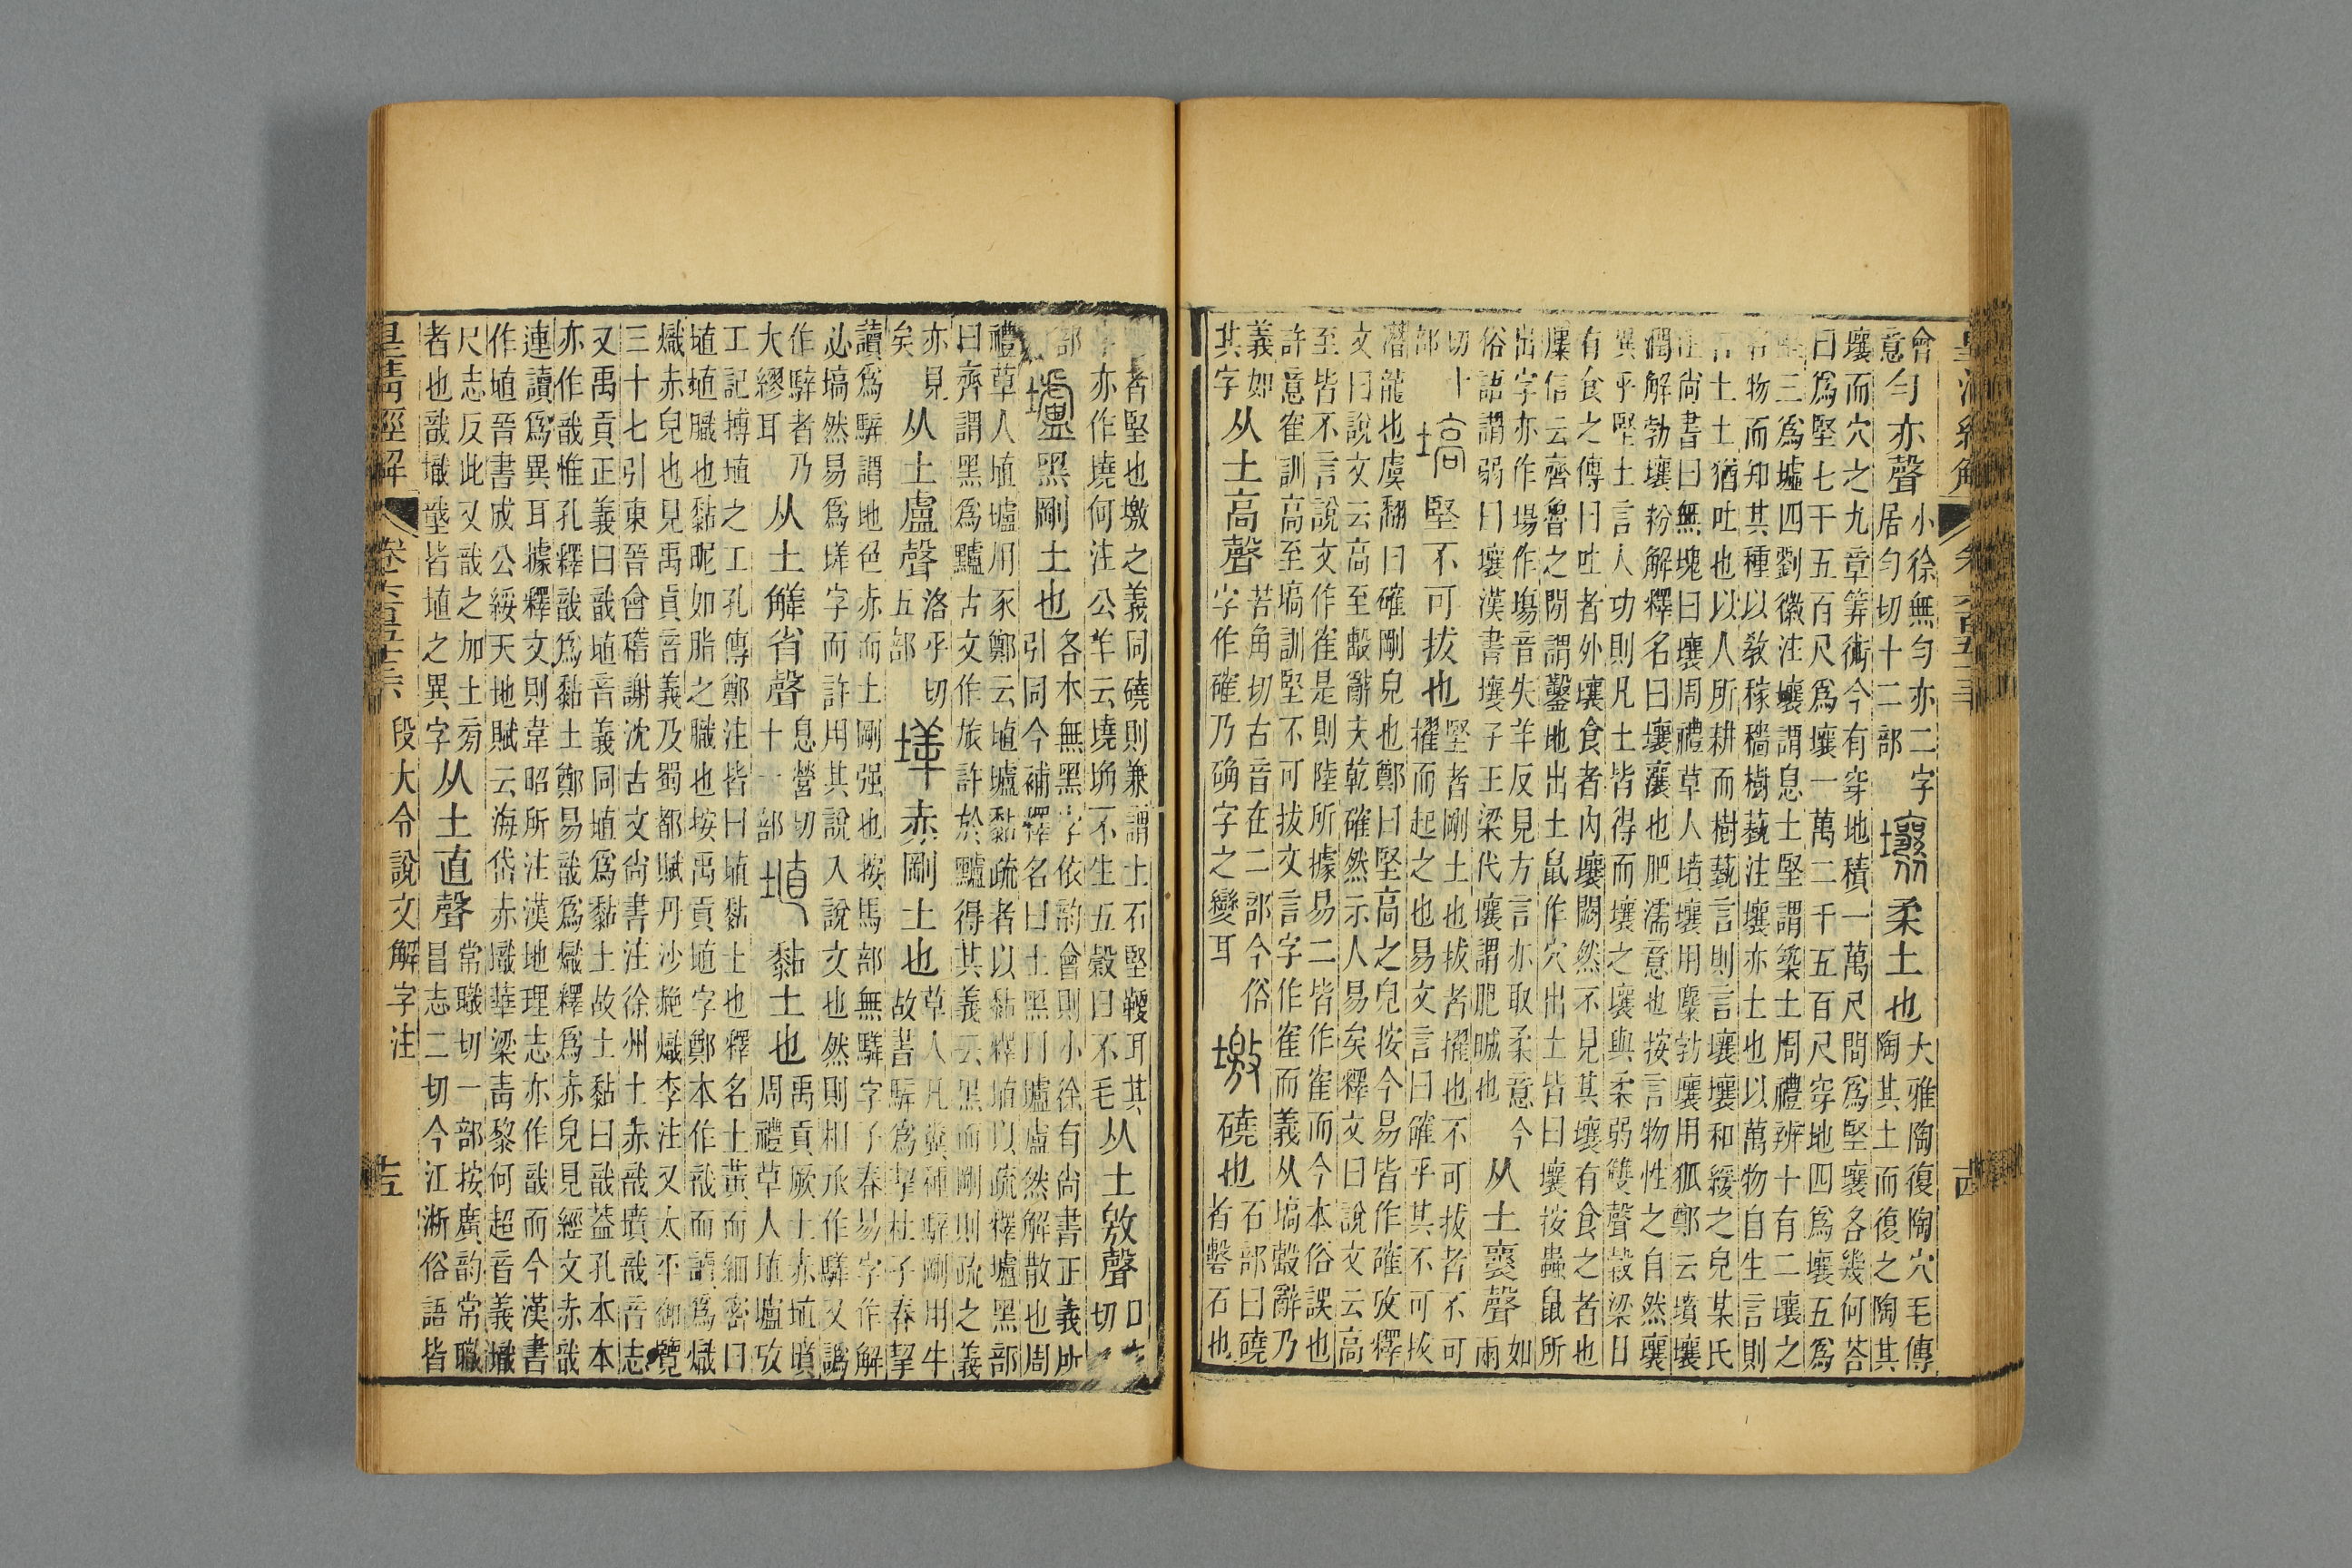 會意勻亦聲小徐無勻亦二字居勻切十二部壤柔土也大雅陶復陶穴毛傳陶其土而復之陶其
壤而穴之九章筭術今有穿地積一萬尺問爲堅壤各幾何荅
曰爲堅七千五百尺爲壤一萬二千五百尺穿地四爲壤五爲
堅三爲墟四劉徽注壤謂息土堅謂築土周禮辨十有二壤之
名物而知其種以敎稼穡樹蓺注壤亦土也以萬物自生言則
言土土猶吐也以人所耕而樹蓺言則言壤壤和緩之皃某氏
注尚書曰無塊曰壤周禮草人墳壤用麋勃壤用狐鄭云墳壤
潤解勃壤粉解釋名曰壤瀼也肥濡意也按言物性之自然壤
異乎堅土言人功則凡土皆得而壤之壤與柔弱雙聲穀梁日
有食之傳曰吐者外壤食者內壤闕然不見其壤有食之者也
麋信云齊魯之閒謂鑿地出土鼠作穴出土皆曰壤按蟲鼠所
出字亦作場作塲音失羊反見方言亦取柔意今
俗語謂弱曰壤漢書壤子王梁代壤謂肥㼐也从土襄聲如兩
切十部塙堅不可拔也堅者剛土也拔者擢也不可拔者不可擢而起之也易文言曰確乎其不可拔
潛龍也虞翻曰確剛皃也鄭曰堅高之皃按今易皆作確攷釋
文曰說文云高至繫辭夫乾確然示人易矣釋文曰說文云高
至皆不言說文作隺是則陸所據易二皆作隺而今本俗誤也
許意隺訓高至塙訓堅不可拔文言字作隺而義从塙繫辭乃
義如其字从土高聲苦角切古音在二部今俗字作確乃确字之變耳墽磽也石部曰磽者磬石也
者堅也墽之義同磽則兼謂土石堅鞕耳其
字亦作墝何注公羊云墝埆不生五穀曰不毛从土敫聲口交切
部壚黑剛土也各本無黑字依韵會則小徐有尚書正義所引同今補釋名曰土黑曰壚盧然解散也周
禮草人埴壚用豕鄭云埴壚黏疏者以黏釋埴以疏釋壚黑部
曰齊謂黑爲黸古文作旅許於黸得其義云黑而剛則疏之義
亦見矣从土盧聲洛乎切五部垟赤剛土也草人凡糞種騂剛用牛故書騂爲挈杜子春挈
讀爲騂謂地色赤而土剛强也按馬部無騂字子春易字作解
必塙然易爲垟字而許用其說入說文也然則相承作騂又譌
作騂者乃大繆耳从土觧省聲息營切十一部埴黏土也禹貢厥土赤埴墳周禮草人埴壚攷
工記摶埴之工孔傳鄭注皆曰埴黏土也釋名土黃而細密曰
埴埴膱也黏昵如脂之膱也按禹貢埴字鄭本作戠而讀爲熾
熾赤皃也見禹貢音義及蜀都賦丹沙赩熾李注又太平御覽
三十七引東晉會稽謝沈古文尚書注徐州土赤戠墳戠音志
又禹貢正義曰戠埴音義同埴爲黏土故土黏曰戠葢孔本本
亦作戠惟孔釋戠爲黏土鄭易戠爲熾釋爲赤皃見經文赤戠
連讀爲異耳據釋文則韋昭所注漢地理志亦作戠而今漢書
作埴晉書成公綏天地賦云海岱赤墄華梁靑黎何超音義墄
尺志反此又戠之加土㫄
者也戠墄埴皆埴之異字从土直聲常職切一部按廣韵常職昌志二切今江浙俗語皆
皇淸經解
段大令說文解字注